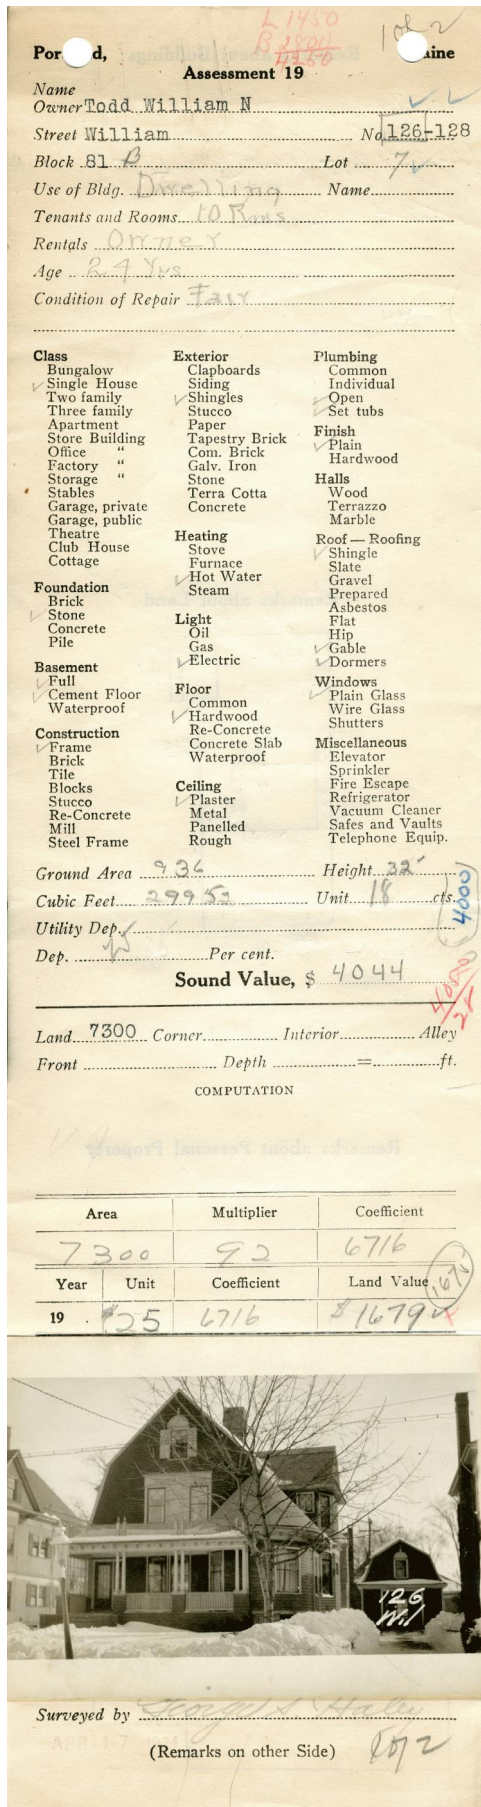 L 1450
B 2800
4250
1 of 2
Por   d,   aine
Assessment 19
Name
Owner Todd William N
Street William No. 126-128
Block 81 B Lot 7
Use of Bldg. Dwelling Name
Tenants and Rooms 10 Rms
Rentals Owner
Age 24 Yrs
Condition of Repair Fair
Class
Bungalow
✓ Single House
Two family
Three family
Apartment
Store Building
Office "
Factory "
Storage "
Stables
Garage, private
Garage, public
Theatre
Club House
Cottage
Foundation
Brick
✓ Stone
Concrete
Pile
Basement
✓ Full
✓ Cement Floor
Waterproof
Construction
✓ Frame
Brick
Tile
Blocks
Stucco
Re-Concrete
Mill
Steel Frame
Exterior
Clapboards
Siding
✓ Shingles
Stucco
Paper
Tapestry Brick
Com. Brick
Galv. Iron
Stone
Terra Cotta
Concrete
Heating
Stove
Furnace
✓ Hot Water
Steam
Light
Oil
Gas
✓ Electric
Floor
Common
✓ Hardwood
Re-Concrete
Concrete Slab
Waterproof
Ceiling
✓ Plaster
Metal
Panelled
Rough
Plumbing
Common
Individual
✓ Open
✓ Set tubs
Finish
✓ Plain
Hardwood
Halls
Wood
Terrazzo
Marble
Roof — Roofing
✓ Shingle
Slate
Gravel
Prepared
Asbestos
Flat
Hip
✓ Gable
✓ Dormers
Windows
✓ Plain Glass
Wire Glass
Shutters
Miscellaneous
Elevator
Sprinkler
Fire Escape
Refrigerator
Vacuum Cleaner
Safes and Vaults
Telephone Equip.
Ground Area 936 Height 32'
Cubic Feet 29952 Unit 18 cts.
4000
Utility Dep.
Dep. Per cent.
Sound Value, $ 4044
Land 7300 Corner Interior Alley
Front Depth = ft.
COMPUTATION
Area Multiplier Coefficient
7300 92 6716
Year Unit Coefficient Land Value
19 . $25 6716 $1679
126
Wil
Surveyed by George S. Haley
(Remarks on other Side)
1 of 2